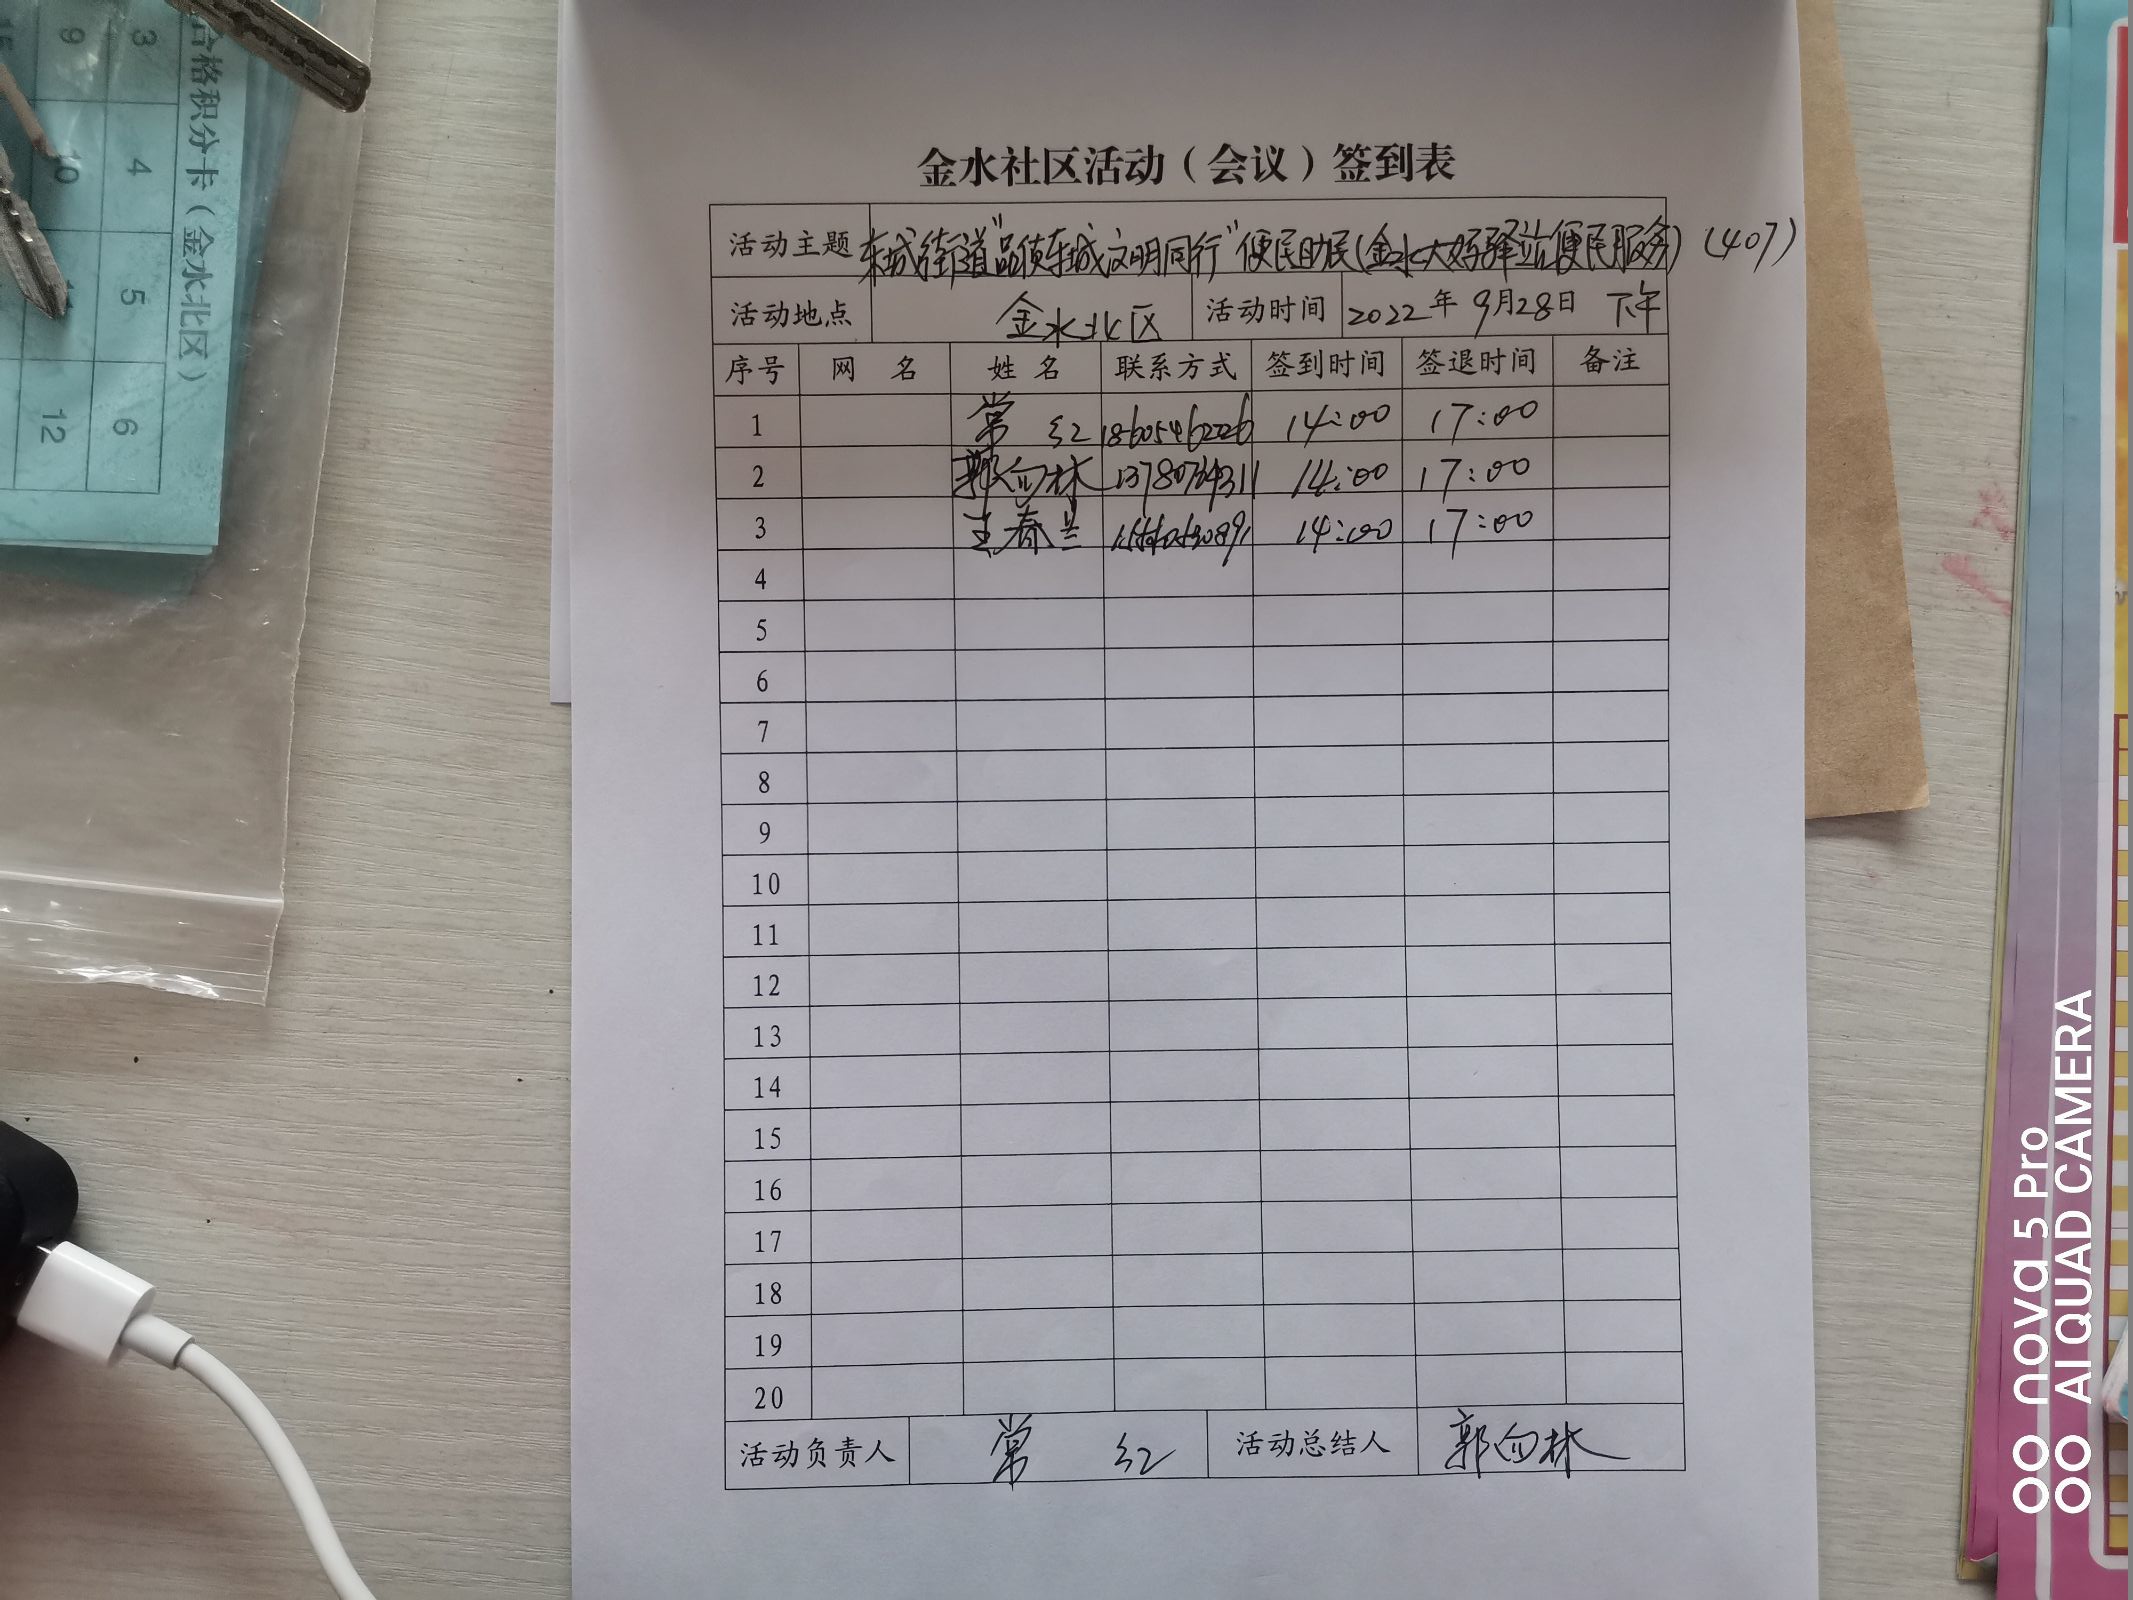 金水社区活动（会议）签到表
活动主题 东城街道"品质东城文明同行"便民助民(金水大嫂驿站便民服务)(407)
活动地点 金水北区 活动时间 2022年9月28日 下午
序号 网 名 姓 名 联系方式 签到时间 签退时间 备注
1 常 红 14:00 17:00
2 郭向林 14:00 17:00
3 王春兰 14:00 17:00
4
5
6
7
8
9
10
11
12
13
14
15
16
17
18
19
20
活动负责人 常 红 活动总结人 郭向林
合格积分卡（金水北区）
3 4 5 6
9 10 12
nova 5 Pro
AI QUAD CAMERA